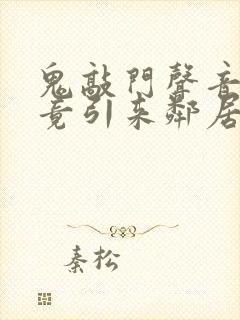 鬼敲門聲音
竟引来鄰居
秦松